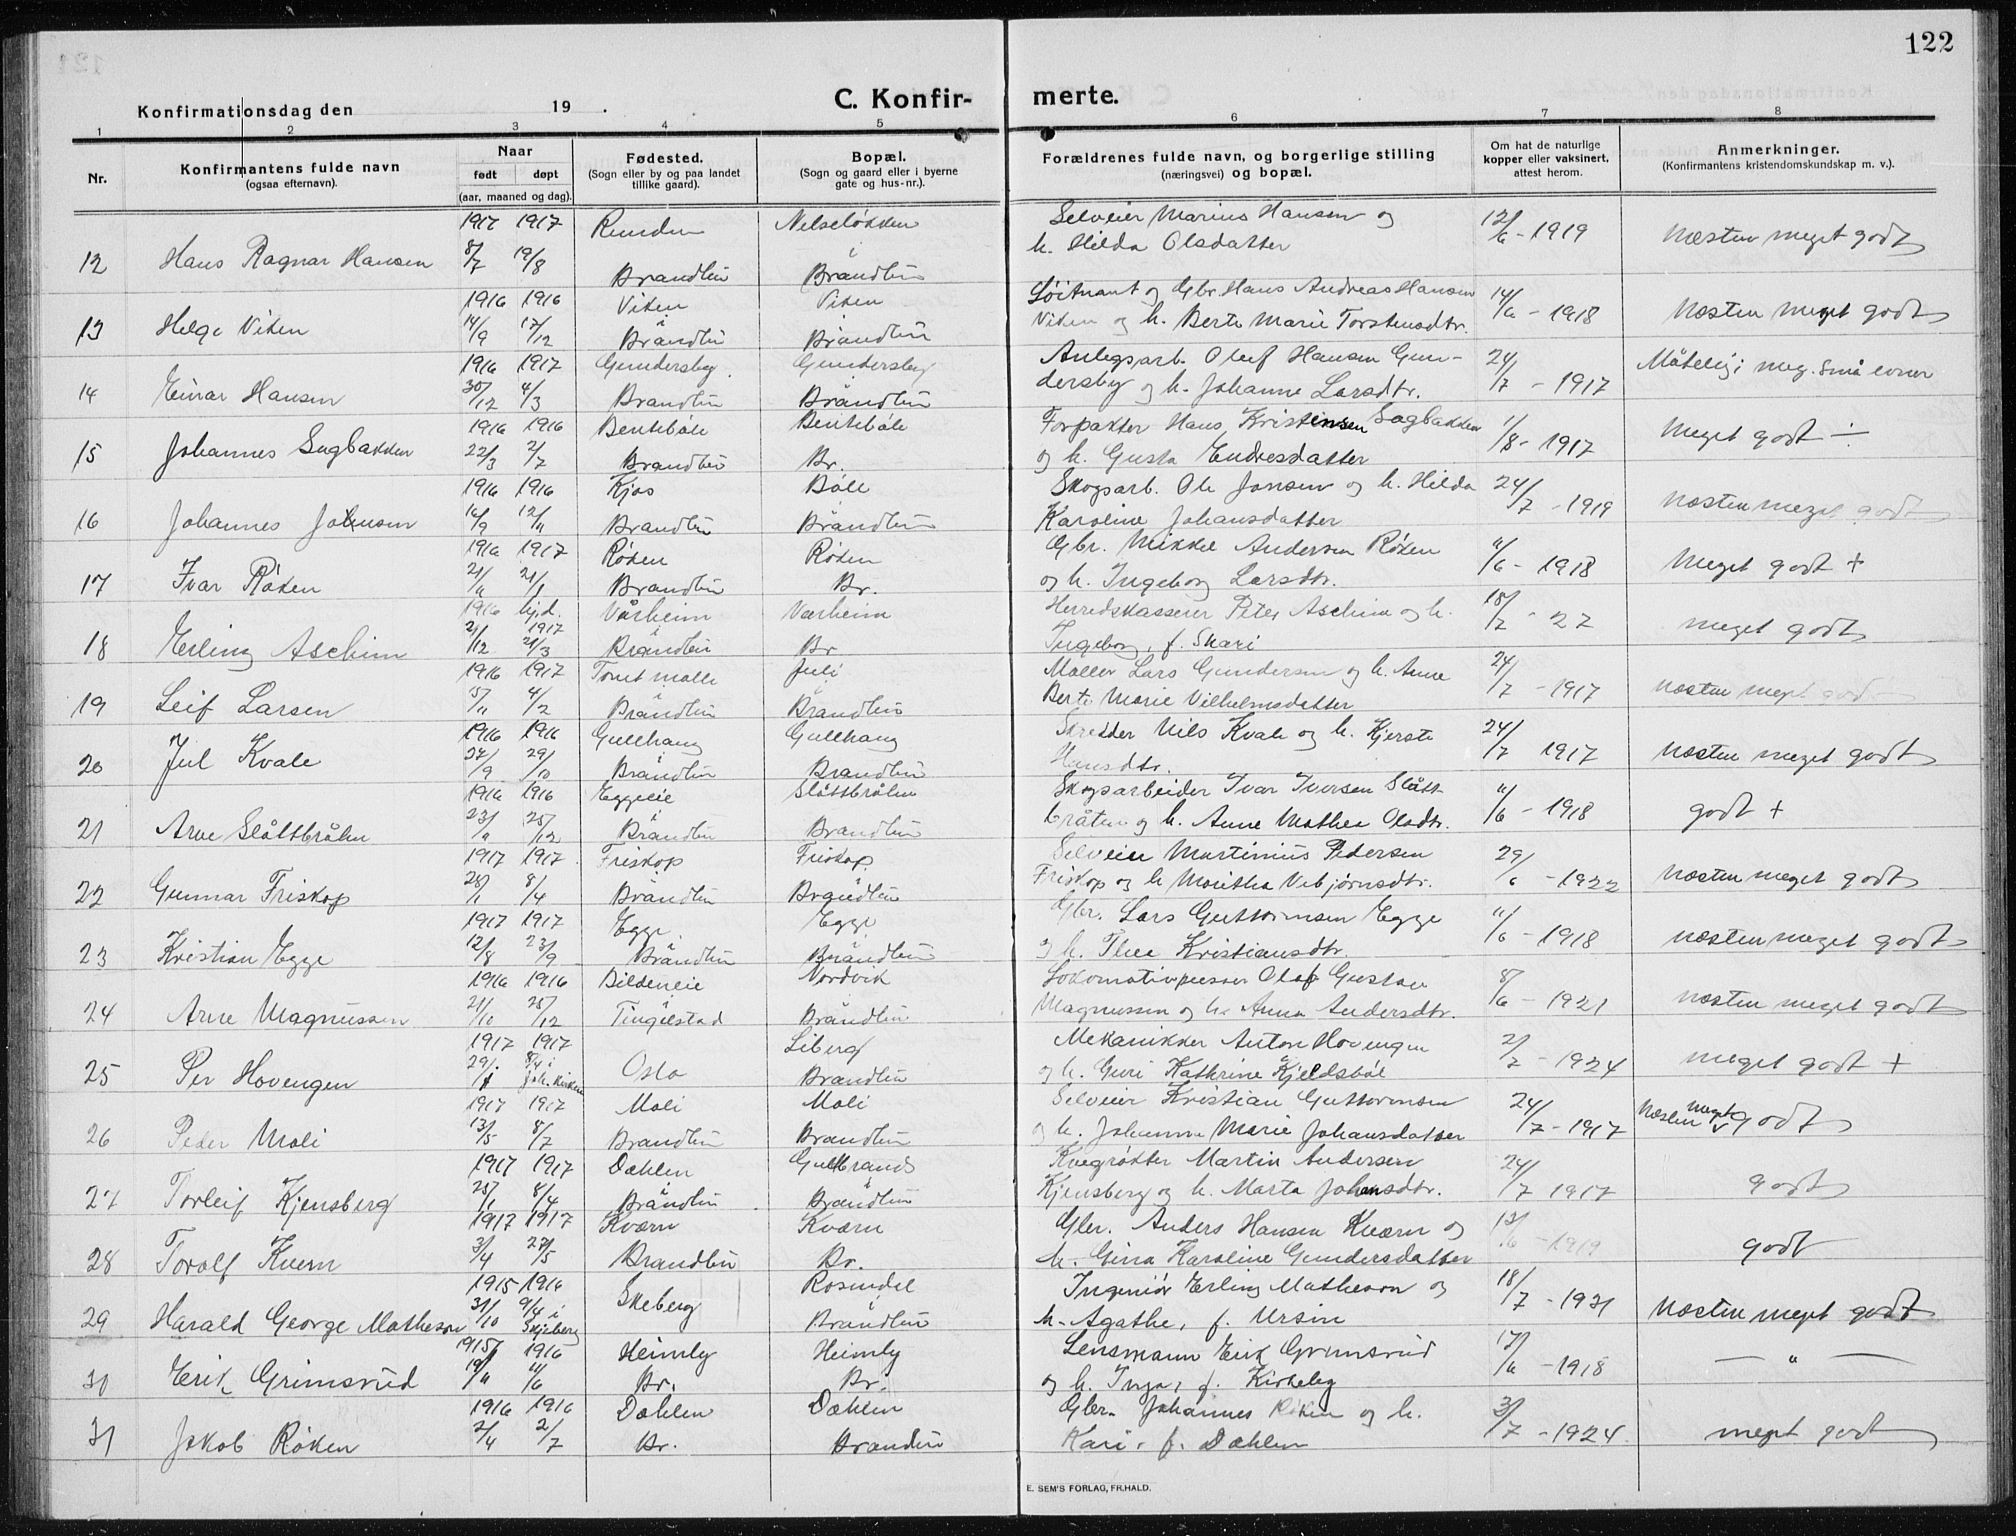 122
Konfirmationsdag den 19 .
C. Konfirmerte.
1 2 3 4 5 6 7 8
Nr.
Konfirmantens fulde navn
(ogsaa efternavn).
Naar
født døpt
(aar, maaned og dag).
Fødested.
(Sogn eller by og paa landet
tillike gaard).
Bopæl.
(Sogn og gaard eller i byerne
gate og hus-nr.).
Forældrenes fulde navn, og borgerlige stilling
(næringsvei) og bopæl.
Om hat de naturlige
kopper eller vaksinert,
attest herom.
Anmerkninger.
(Konfirmantens kristendomskundskap m. v.).
1917 1917 Nelseløkken Selveier Marius Hansen og 12/6 - 1919 næsten meget godt
12 Hans Ragnar Hansen 8/7 19/8 Brandbu Brandbu h. Hilda Olsdatter
1916 1916 Viken Viken Løitnant og Gbr. Hans Andreas Hansen 14/6 - 1918 næsten meget godt
13 Helge Viken 14/9 17/12 Brandbu Brandbu Viken og h. Berte Marie Torstensdtr.
1916 1917 Gundersby Gundersby Anlegsarb. Oluf Hansen Gun- 24/7 - 1917 Måtelig; meg. små evner
14 Einar Hansen 30/12 4/3 Brandbu Brandbu dersby og h. Johanne Larsdtr.
1916 1916 Bentebøle Bentebøle Forpakter Hans Kristensen Sagbakken 1/8 - 1917 meget godt ÷
15 Johannes Sagbakken 22/3 2/7 Brandbu Br. og h. Gusta Endresdatter
1916 1916 Kjos Bøle Skogsarb. Ole Jonsen og h. Hilda 24/7 - 1919 næsten meget godt
16 Johannes Johnsen 12/11 Brandbu Brandbu Karoline Johansdatter
1916 1917 Røken Røken Gbr. Mikkel Andersen Røken 11/6 - 1918 meget godt +
17 Ivar Røken 21/1 Brandbu Br. og h. Ingeborg Larsdtr.
1916 hj.d. Vårheim Varheim Herredskasserer Peter Aschim og h. 18/7 - 27 meget godt
18 Erling Aschim 2/12 1917 21/3 Brandbu Br. Ingeborg, f. Skari
1916 1917 Juli Møller Lars Gundersen og h. Anne 24/7 - 1917 næsten meget godt
19 Leif Larsen 5/11 4/2 Brandbu Brandbu Berte Marie Vilhelmsdatter
1916 1916 Gullhaug Gullhaug Skredder Nils Kvale og h. Kjerste 24/7 1917 næsten meget godt
20 Jul Kvale 27/9 29/10 Brandbu Brandbu Hansdtr.
1916 1916 Eggeeie Slåttbråten Skogsarbeider Ivar Iversen Slått- 11/6 - 1918 godt +
21 Arve Slåttbråten 23/9 25/12 Brandbu Brandbu bråten og h. Anne Mathea Olsdtr.
1917 1917 Friskop Friskop Selveier Martinius Pedersen 29/6 - 1922 næsten meget godt
22 Gunnar Friskop 28/1 8/4 Brandbu Brandbu Friskop og h Marthea Vebjørnsdtr.
1917 1917 Egge Egge Gbr. Lars Guttormsen Egge 11/6 - 1918 næsten meget godt
23 Kristian Egge 12/8 23/9 Brandbu Brandbu og h. Thea Kristiansdtr.
1916 1916 Bildeneie Nordvik Lokomotivpusser Olaf Gustav 8/6 - 1921 næsten meget godt
24 Arne Magnussen 21/10 25/12 Tingelstad Brandbu Magnussen og h. Anna Andersdtr.
1917 1917 Oslo Liberg Mekanikker Anton Hovengen 2/7 - 1924 meget godt +
25 Per Hovengen 29/1 8/4 i Joh. kirken Brandbu og h. Guri Kathrine Kjeldsbøl
1917 1917 Moli Moli Selveier Kristian Guttormsen 24/7 - 1917 Næsten meget godt
26 Peder Moli 13/5 8/7 Brandbu Brandbu og h. Johanne Marie Johansdatter
1917 1917 Dæhlen Gulbrands Kvegrøkter Martin Andersen 24/7 1917 godt
27 Torleif Kjensberg 28/1 8/4 Brandbu Brandbu Kjensberg og h. Marta Johansdtr.
1917 1917 Kværn Kværn Gbr. Anders Hansen Kværn og 12/6 - 1919 godt
28 Torolf Kvern 3/4 27/5 Brandbu Br. h. Gina Karoline Gundersdatter
1915 1916 Skeberg Rosendal Ingeniør Erling Matheson og 18/7 - 1931 næsten meget godt
29 Harald George Matheson 31/10 9/4 i Skjeberg Brandbu h. Agathe, f. Ursin
1915 1916 Heimly Heimly Lensmann Erik Grimsrud 17/6 - 1918 — " —
30 Erik Grimsrud 19/11 11/6 Br. Br. og h. Inga, f. Kirkeby
1916 1916 Dæhlen Dæhlen Gbr. Johannes Røken og h. 3/7 - 1924 meget godt
31 Jakob Røken 2/4 2/7 Br. Brandbu Kari, f. Dæhlen
E. SEM'S FORLAG, FR.HALD.